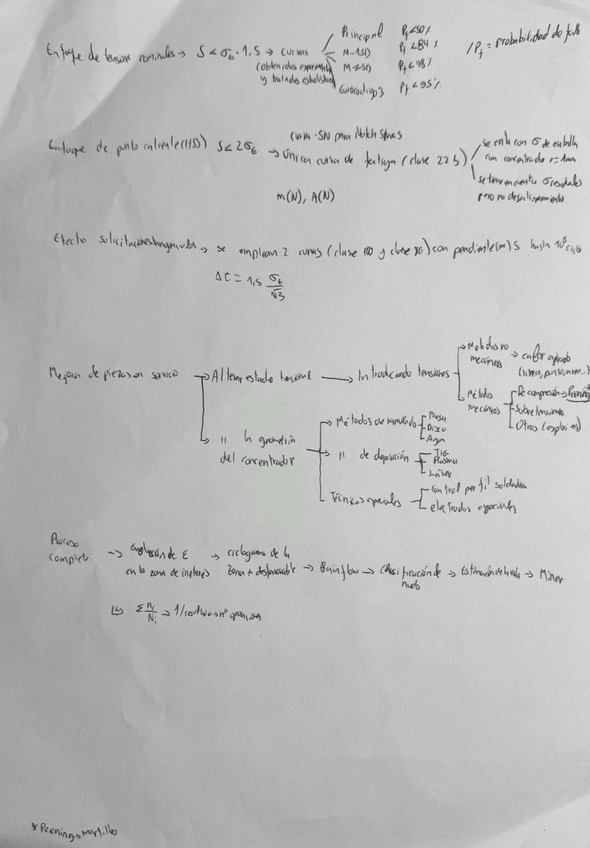 Enfoque de tensiones nominales → S < σE · 1,5 → curvas
(obtenidas experiment.
y tratadas estadística
Principal Pf < 50%
M-1SD Pf < 84%
M-2SD Pf < 98%
Eurocódigo 3 Pf < 95%
/ Pf = probabilidad de fallo
Enfoque de punto caliente (HSS) S < 2σE → única curva de fatiga (clase 225)
curva-SN para Notch Stress
se entra con σ de entalla
con concentrador r=1mm
se tiene en cuenta σ residuales
pero no desalineamiento
m(N), A(N)
Efecto solicitaciones tangenciales → se emplean 2 curvas (clase 100 y clase 80) con pendiente (m) 5 hasta 10⁸ ciclos
Δτ = 1,5 σE/√3
Mejora de piezas en servicio → Alterar estado tensional → Introduciendo tensiones
→ Métodos no mecánicos → calor aplicado
(línea, punto,
→ Métodos mecánicos
De compresión → Peening*
Sobretensiones
Otros (explosivos)
→ " la geometría
del concentrador
→ Métodos de amolado
Fresa
Disco
Agua
→ " de deposición
TIG
Plasma
Láser
→ Técnicas especiales
Control perfil soldadura
electrodos especiales
Proceso
completo → evolución de ε
en la zona de interés → ciclograma de la
zona + desfavorable → Rainflow → Clasificación de
nudo → Estimación de la vida → Miner
↳ Σ ni/Ni → 1/ → nº
* Peening → martillo